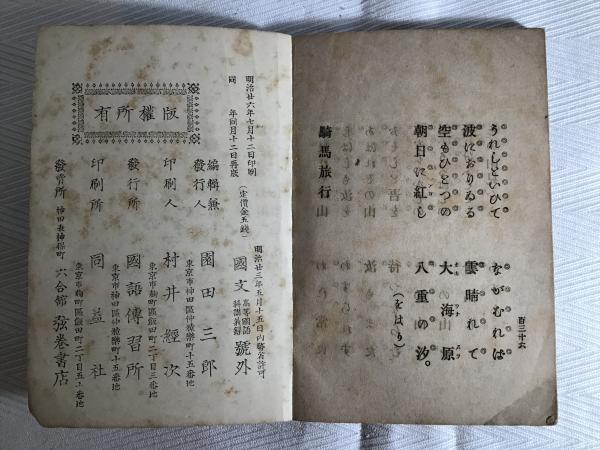 百三十六
うれしといひて ながむれば
波におりゐる 雲晴れて
空もひとつの 大海原
朝日に紅し 八重の汐。
(をはり)
騎馬旅行
明治廿六年七月十二日印刷
同 年同月十二日再版
(定價金五錢)
版權所有
明治廿三年五月十五日内務省許可
國文 高等國語科講義録 號外
編輯兼發行人 東京市神田區仲猿樂町十五番地 園田三郎
印刷人 東京市麹町區飯田町二丁目三番地 村井經次
發行所 東京市神田區仲猿樂町十五番地 國語傳習所
印刷所 東京市麹町區飯田町二丁目五十番地 同益社
發賣所 神田表神保町 六合館 弦巻書店